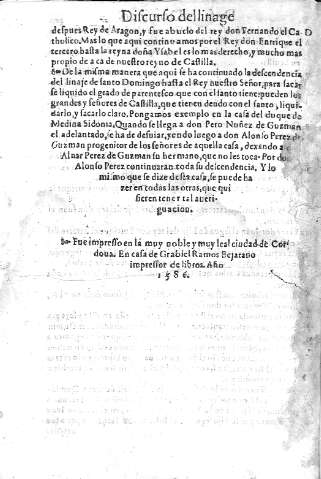 Discurso del linage
despues Rey de Aragon, y fue abuelo del rey don Fernando el Ca-
tholico. Mas lo que aqui continuamos por el Rey don Enrrique el
tercero hasta la reyna doña Ysabel es lo mas derecho, y mucho mas
propio de aca de nuestro reyno de Castilla.
De la misma manera que aqui se ha continuado la descendencia
del linaje de santo Domingo hasta el Rey nuestro Señor, para sacar
se liquido el grado de parentesco que con el santo tienen: pueden los
grandes y señores de Castilla, que tienen deudo con el santo, liqui-
darlo, y sacarlo claro. Pongamos exemplo en la casa del duque de
Medina Sidonia, Quando se llega a don Pero Nuñez de Guzman
el adelantado, se ha de desuiar, yendo luego a don Alonso Perez de
Guzman progenitor de los señores de aquella casa, dexando a
Aluar Perez de Guzman su hermano, que no les toca. Por dō
Alonso Perez continuaran toda su descendencia, Y lo
mismo que se dize desta casa, se puede ha
zer en todas las otras, que qui
sieren tener tal aueri-
guacion.
Fue impresso en la muy noble y muy leal ciudad de Cor
doua. En casa de Grabiel Ramos Bejarano
impressor de libros. Año
1586.